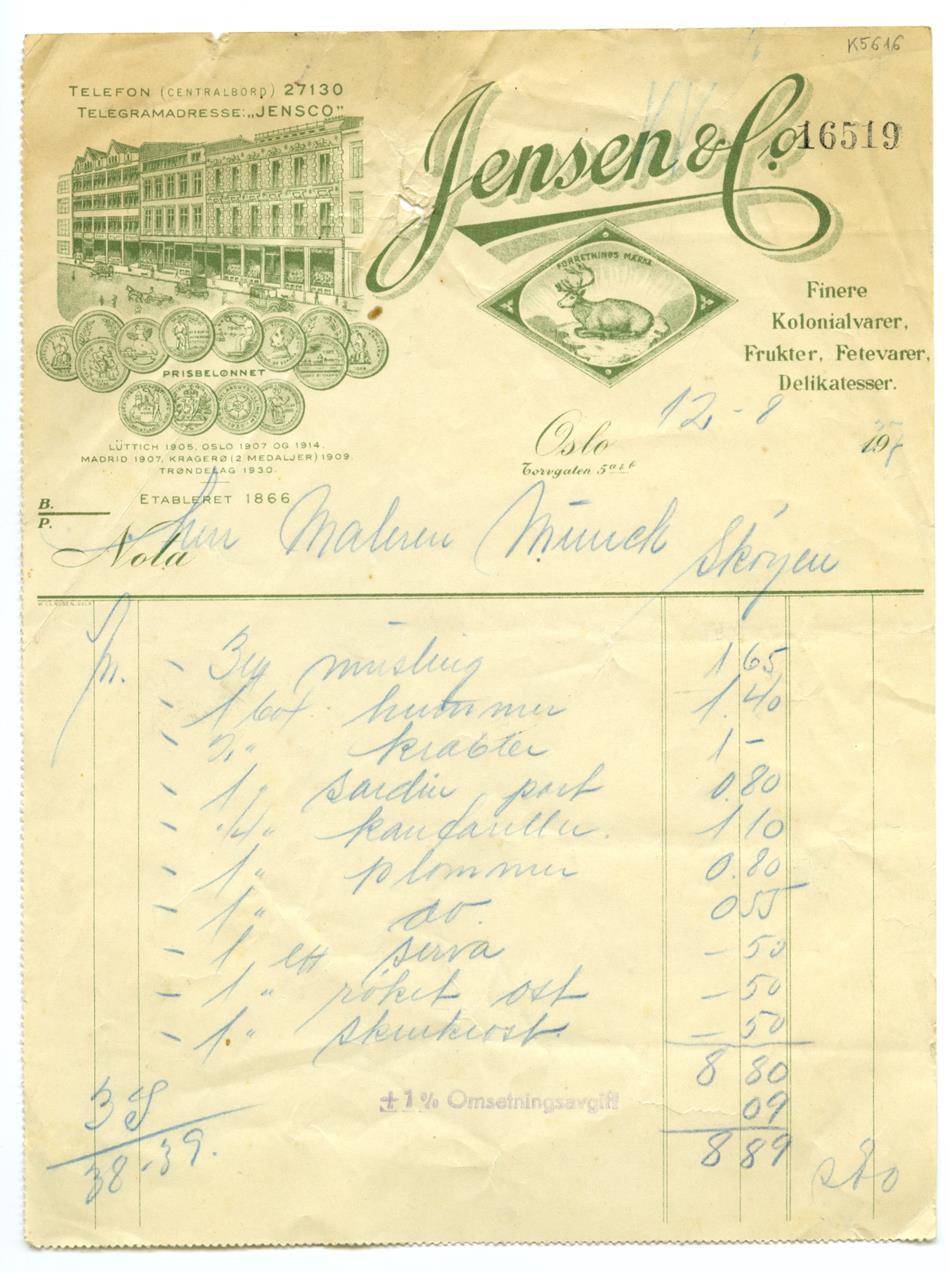 K5616
TELEFON (CENTRALBORD) 27130
TELEGRAMADRESSE: „JENSCO"
Jensen & Co.
16519
FORRETNINGS MÆRKE
Finere
Kolonialvarer,
Frukter, Fetevarer,
Delikatesser.
PRISBELØNNET
LÜTTICH 1905, OSLO 1907 OG 1914,
MADRID 1907, KRAGERØ (2 MEDALJER) 1909.
TRØNDELAG 1930.
ETABLERET 1866
Oslo 12-8 193
Torvgaten 5 a & b
B.
P.
Nota Herr Maleren Munch Skøyen
musling 1 65
1 box hummer 1.40
" krabber 1 -
1 " sardin port 0.80
" kantareller. 1 10
1 " plommer 0.80
1 " do. 0 55
1 ett serva - 50
1 " røket ost - 50
1 " skinkeost - 50
8 80
+1% Omsetningsavgift 09
8 89
38-39.